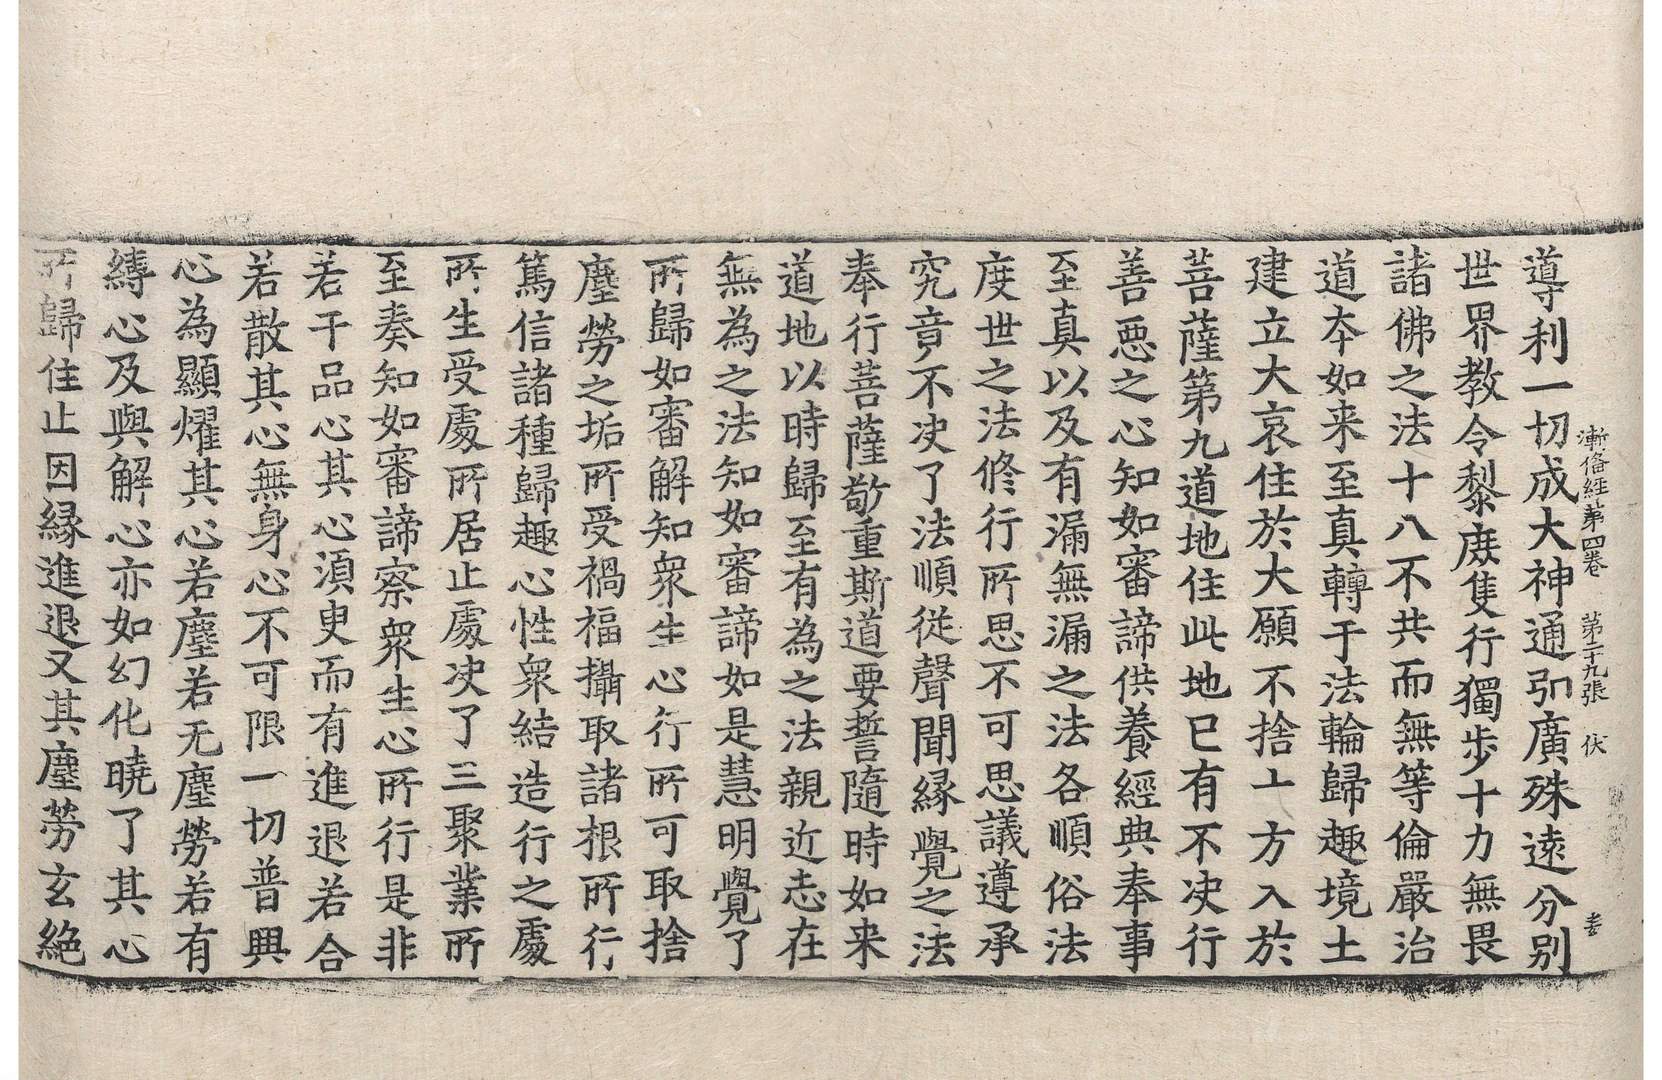 漸俻經第四卷 第二十九張 伏
導利一切成大神通引廣殊遠分別
世界教令黎庶隻行獨步十力無畏
諸佛之法十八不共而無等倫嚴治
道本如来至真轉于法輪歸趣境土
建立大哀住於大願不捨十方入於
菩薩第九道地住此地已有不决行
善惡之心知如審諦供養經典奉事
至真以及有漏無漏之法各順俗法
度世之法修行所思不可思議遵承
究竟不决了法順從聲聞緣覺之法
奉行菩薩敬重斯道要誓隨時如来
道地以時歸至有為之法親近志在
無為之法知如審諦如是慧明覺了
所歸如審解知衆生心行所可取捨
塵勞之垢所受禍福攝取諸根所行
篤信諸種歸趣心性衆結造行之處
所生受處所居止處决了三聚業所
至奏知如審諦察衆生心所行是非
若干品心其心湏臾而有進退若合
若散其心無身心不可限一切普興
心為顯耀其心若塵若无塵勞若有
縛心及與解心亦如幻化曉了其心
所歸住止因緣進退又其塵勞玄絕